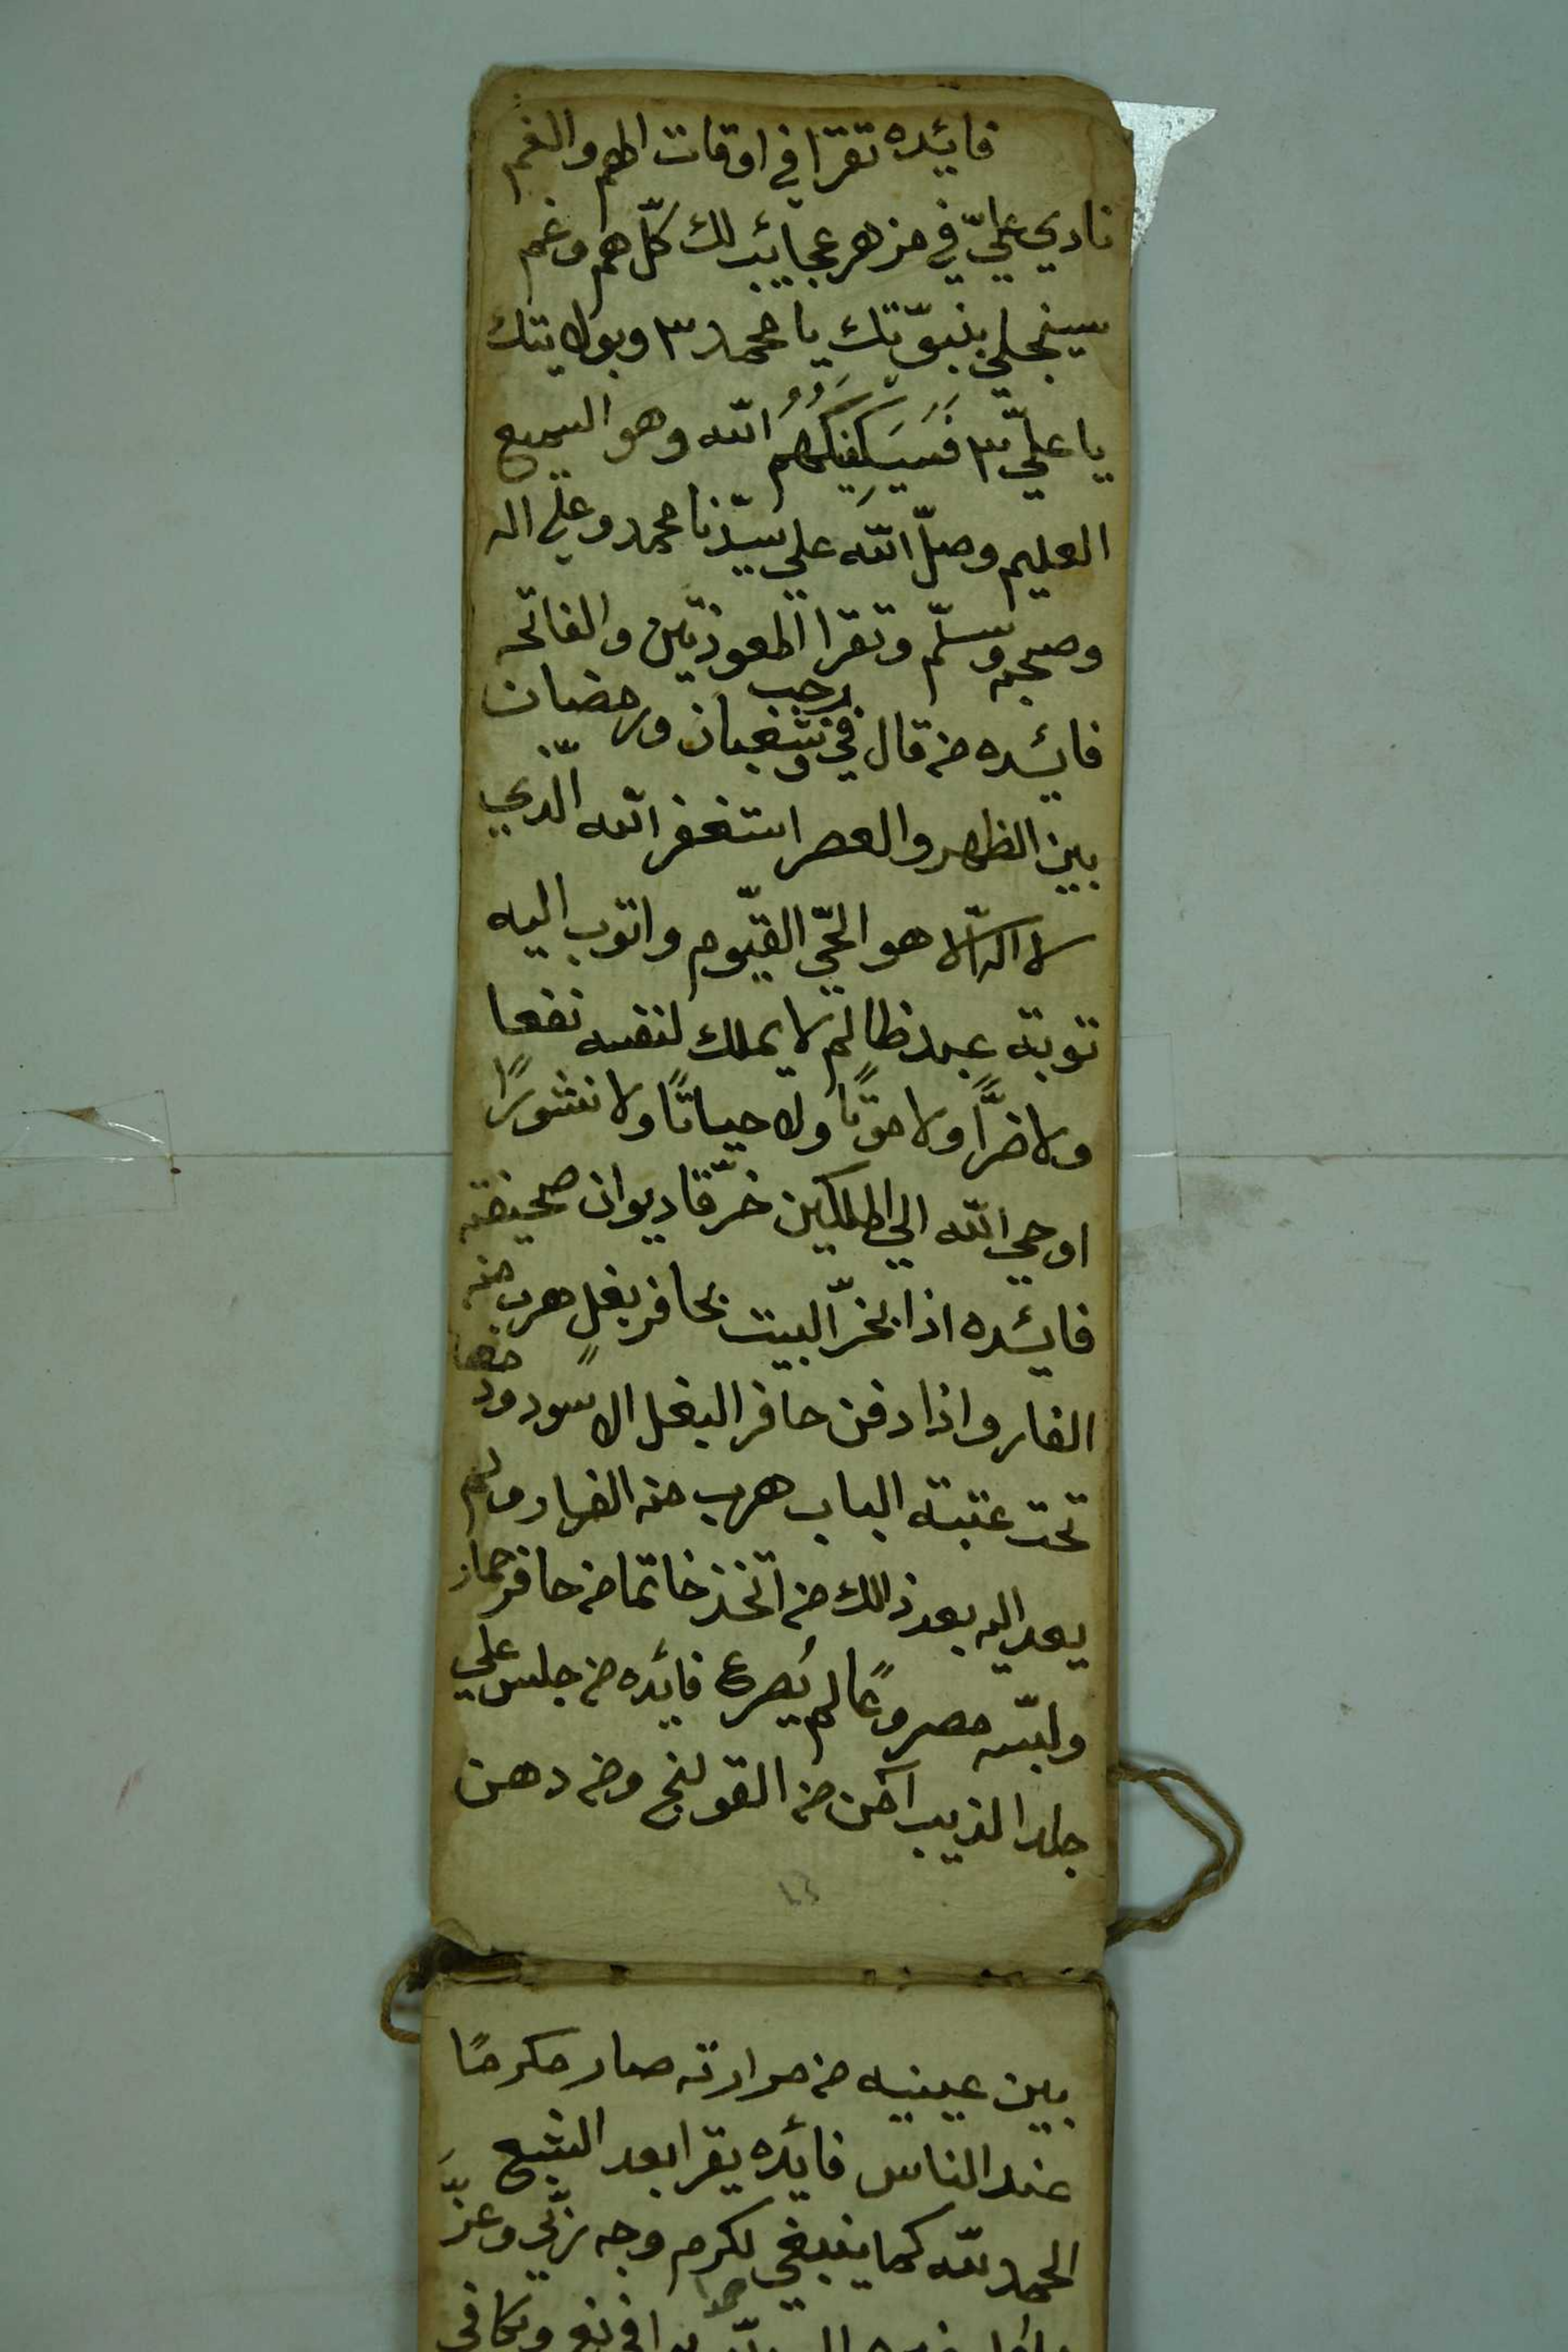 فائده تقرا في اوقات الهم والغم
نادي عليّ في مزهر عجائب لك كلّ هم وغم
سينجلي بنبوّتك يا محمد ٣ وبولايتك
يا عليّ ٣ فَسَيَكفِيكَهُمُ الله وهو السميع
العليم وصلّ الله علي سيّدنا محمد وعلي اله
وصحبه وسلّم وتقرا المعوذتين والفاتحه
فائده من قال في رجب وشعبان ورمضان
بين الظهر والعصر استغفر الله الّذي
لا اله الّا هو الحّي القيّوم واتوب اليه
توبة عبد ظالم لا يملك لنفسه نفعا
ولا ضرًّا ولا موتًا ولا حياتًا ولا نشورًا
اوحي الله الي الملكين خرّقا ديوان صحيفته
فائده اذا بخرّ البيت بحافر بغلٍ هرب منه
الفار واذا دفن حافر البغل الاسود
تحت عتبة الباب هرب منه الفار ولم
يعد اليه بعد ذلك من اتخذ خاتما من حافر حمار
ولبسه مصروعًا لم يُصرع فائده من جلس علي
جلد الذيب آمن من القولنج ومن دهن
بين عينيه من مرارته صار مكرمًا
عند الناس فائده يقرا بعد الشبع
الحمد لله كما ينبغي لكرم وجه ربّي وعزَّ
حمدا يوافي نعمه ويكافي